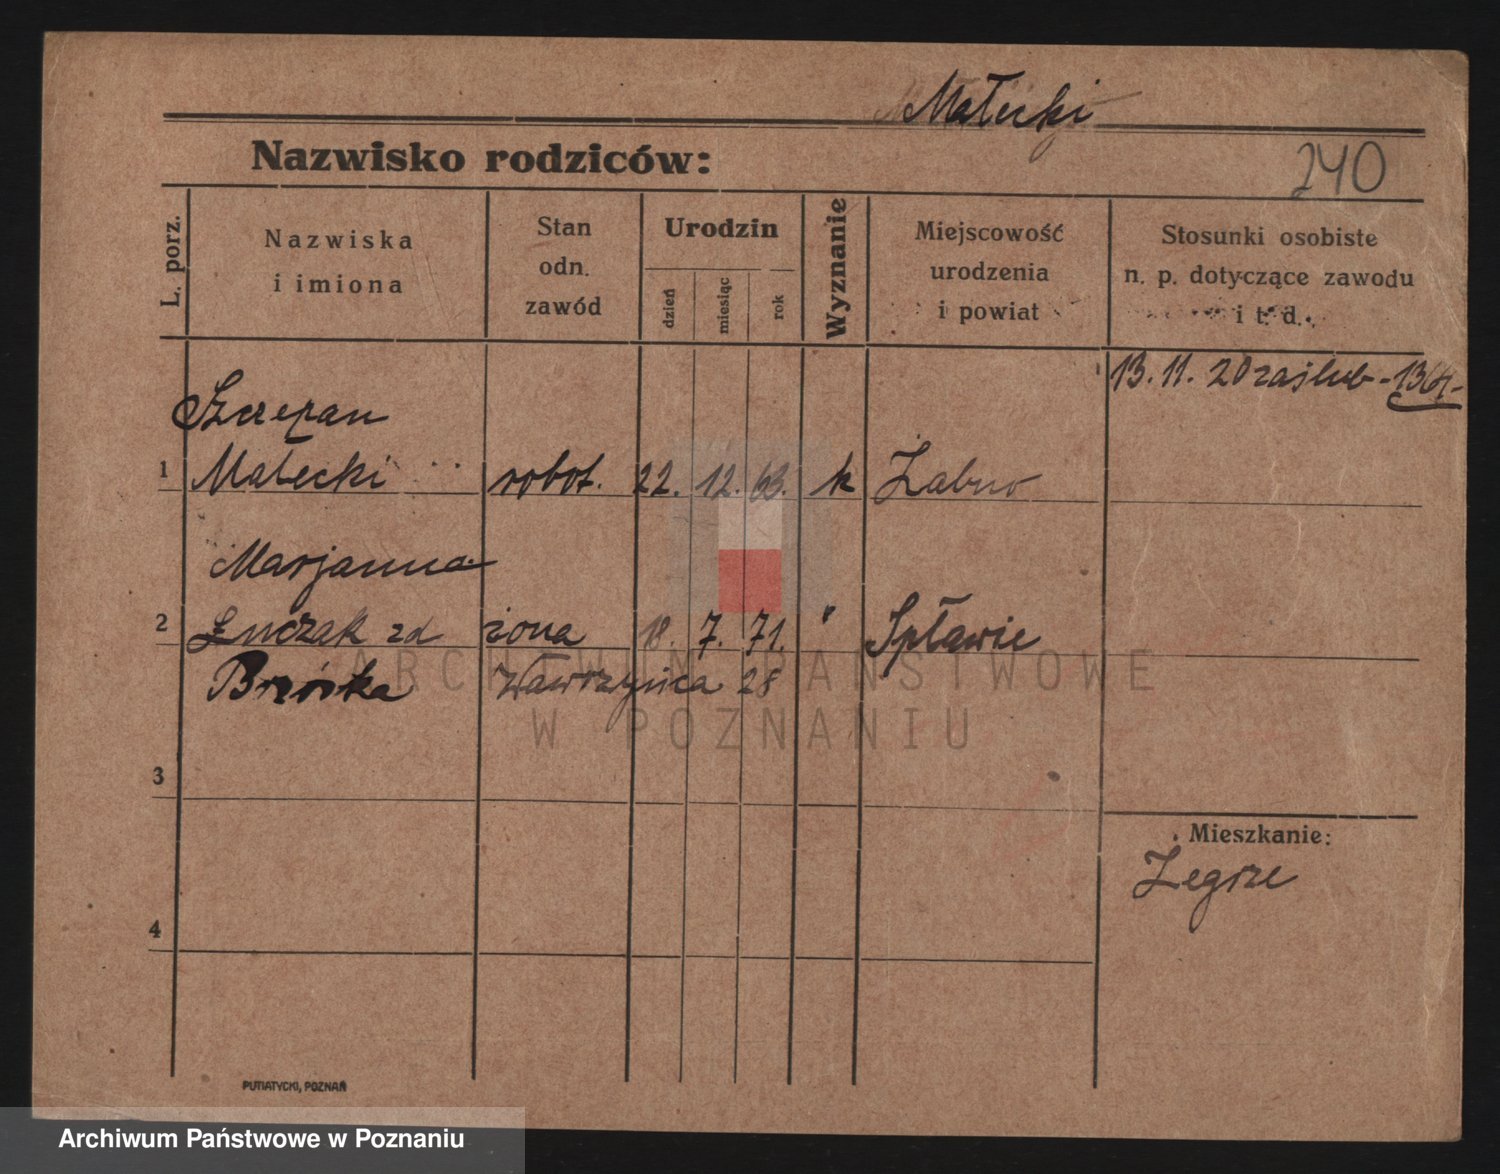 Małecki
Nazwisko rodziców:
240
L. porz.
Nazwiska
i imiona
Stan
odn.
zawód
Urodzin
dzień
miesiąc
rok
Wyznanie
Miejscowość
urodzenia
i powiat
Stosunki osobiste
n. p. dotyczące zawodu
i t. d.
13. 11. 20 zaślub -
Szczepan
1 Małecki robot. 22. 12. 63. k Żabno
Marjanna
2 zd żona 18. 7. 71. " Spławie
Brzóska Wawrzyńca 28
3
Mieszkanie:
Żegrze
4
PUTIATYCKI, POZNAŃ
ARCHIWUM PAŃSTWOWE
W POZNANIU
Archiwum Państwowe w Poznaniu